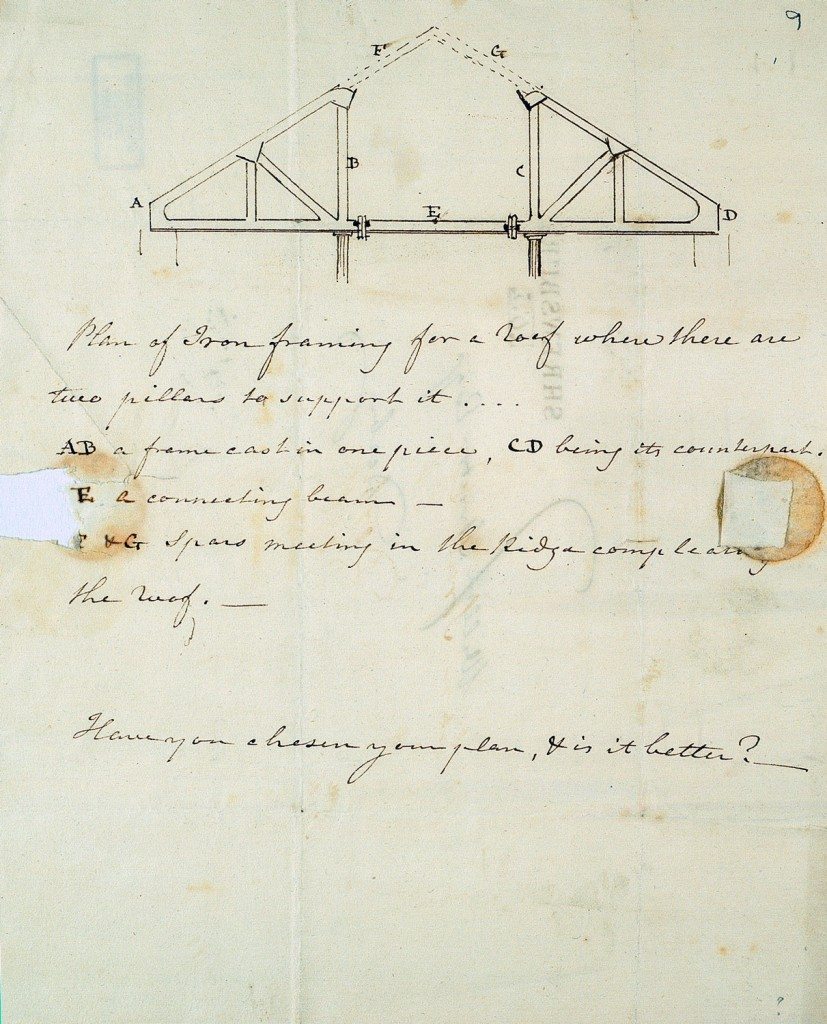 9
F G
B C
A E D
Plan of Iron framing for a Roof where there are
two pillars to support it ....
AB a frame cast in one piece, CD being its counterpart.
E a connecting beam —
F & G Spars meeting in the Ridge compleating
the roof. —
Have you chosen your plan, & is it better? —
SHREWSBURY